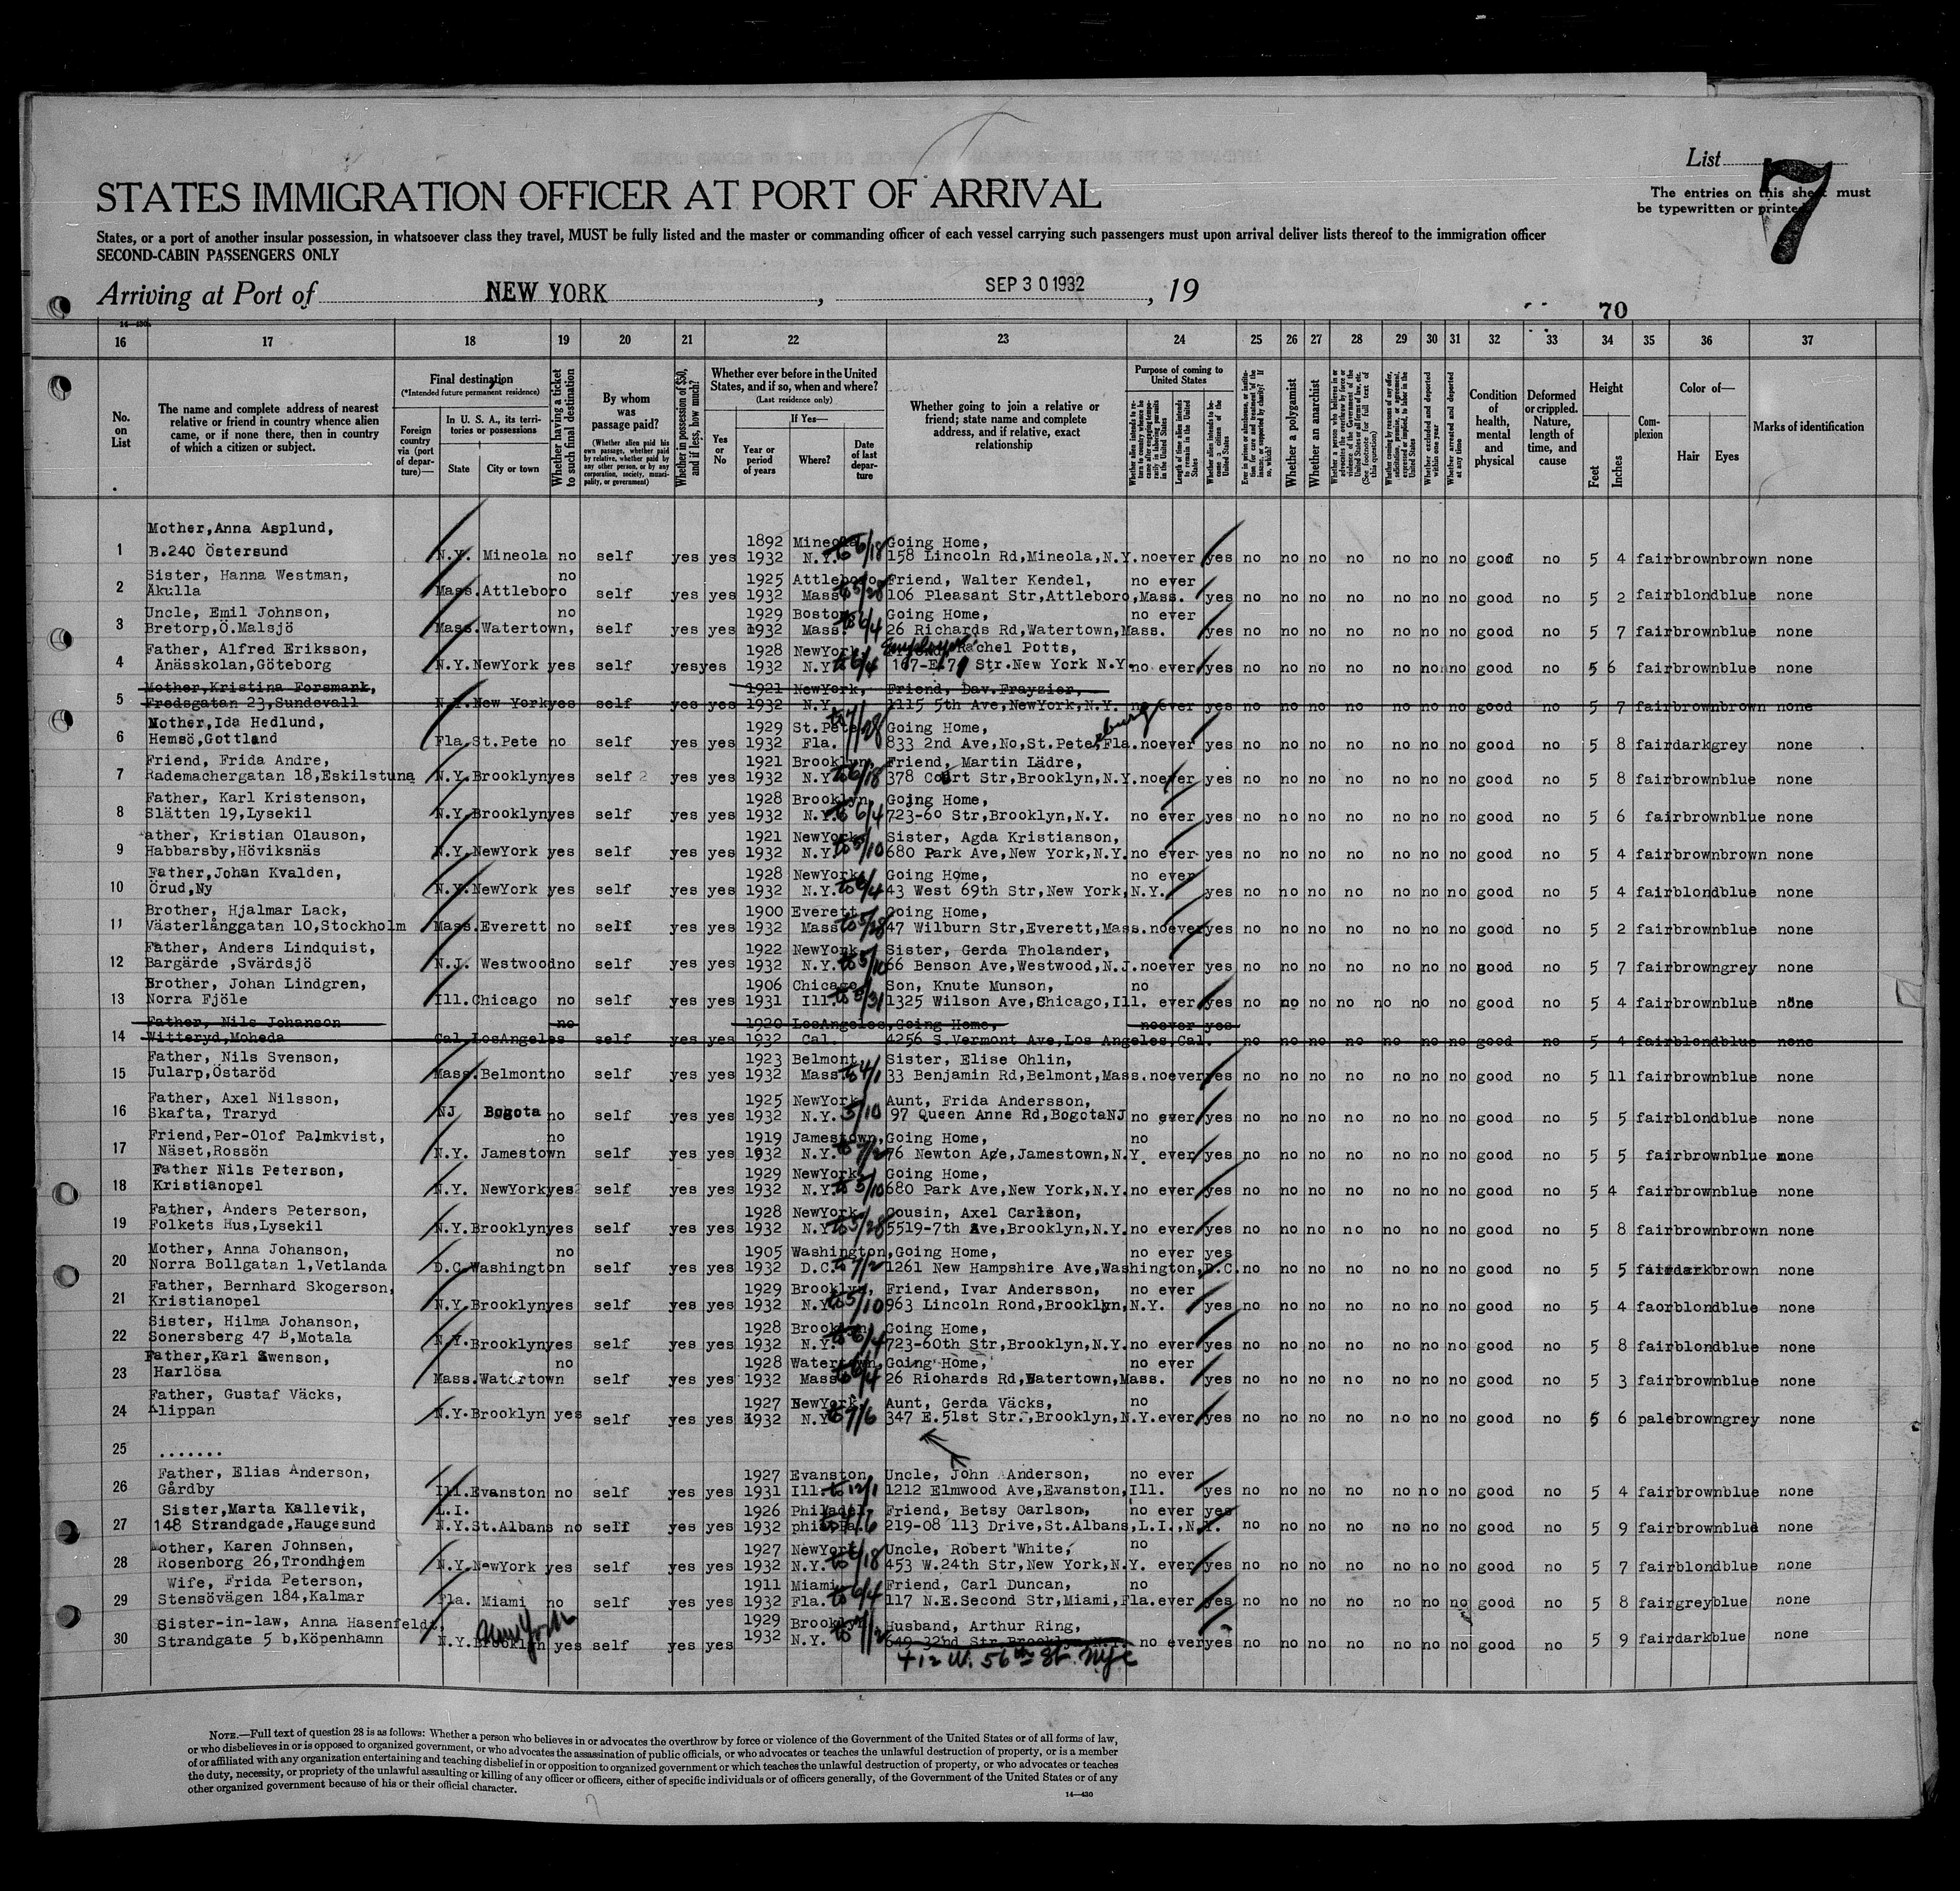 List 7
The entries on this sheet must
be typewritten or printed
STATES IMMIGRATION OFFICER AT PORT OF ARRIVAL
States, or a port of another insular possession, in whatsoever class they travel, MUST be fully listed and the master or commanding officer of each vessel carrying such passengers must upon arrival deliver lists thereof to the immigration officer
SECOND-CABIN PASSENGERS ONLY
Arriving at Port of NEW YORK, SEP 30 1932, 19
70
14-430
16 17 18 19 20 21 22 23 24 25 26 27 28 29 30 31 32 33 34 35 36 37
No. on List
The name and complete address of nearest relative or friend in country whence alien came, or if none there, then in country of which a citizen or subject.
Final destination
(*Intended future permanent residence)
Foreign country via (port of departure)—
In U. S. A., its territories or possessions
State City or town
Whether having a ticket to such final destination
By whom was passage paid?
(Whether alien paid his own passage, whether paid by relative, whether paid by any other person, or by any corporation, society, municipality, or government)
Whether in possession of $50, and if less, how much?
Whether ever before in the United States, and if so, when and where?
(Last residence only)
Yes or No
If Yes—
Year or period of years
Where?
Date of last departure
Whether going to join a relative or friend; state name and complete address, and if relative, exact relationship
Purpose of coming to United States
Whether alien intends to return to country whence he came after engaging temporarily in laboring pursuits in the United States
Length of time alien intends to remain in the United States
Whether alien intends to become a citizen of the United States
Whether a polygamist
Whether an anarchist
Whether excluded and deported within one year
Whether arrested and deported at any time
Condition of health, mental and physical
Deformed or crippled. Nature, length of time, and cause
Height
Feet Inches
Complexion
Color of—
Hair Eyes
Marks of identification
Mother,Anna Asplund, 1892 Mineola Going Home,
1 B.240 Östersund N.Y. Mineola no self yes yes 1932 N.Y. to 6/18 158 Lincoln Rd,Mineola,N.Y. noever yes no no no no no no no good no 5 4 fair brown brown none
Sister, Hanna Westman, no 1925 Attleboro Friend, Walter Kendel, no ever
2 Äkulla Mass. Attleboro self yes yes 1932 Mass. to 5/28 106 Pleasant Str,Attleboro,Mass. yes no no no no no no no good no 5 2 fair blond blue none
Uncle, Emil Johnson, no 1929 Boston Going Home, no ever
3 Bretorp,Ö.Malsjö Mass. Watertown, self yes yes 1932 Mass. to 6/4 26 Richards Rd,Watertown,Mass. yes no no no no no no no good no 5 7 fair brown blue none
Father, Alfred Eriksson, 1928 NewYork Employer Rachel Potts,
4 Anässkolan,Göteborg N.Y. NewYork yes self yes yes 1932 N.Y. to 6/4 167-E.71 Str.New York N.Y. no ever yes no no no no no no no good no 5 6 fair brown blue none
Mother,Kristina Forsmark, 1921 NewYork, Friend, Dav.Frayzier,
5 Fredsgatan 23,Sundsvall N.Y. New York yes self yes yes 1932 N.Y. 1115 5th Ave,NewYork,N.Y. no ever yes no no no no no no no good no 5 7 fair brown brown none
Mother,Ida Hedlund, 1929 St.Pete Going Home, sburg
6 Hemsö,Gottland Fla. St.Pete no self yes yes 1932 Fla. to 7/28 833 2nd Ave,No,St.Pete,Fla. noever yes no no no no no no no good no 5 8 fair dark grey none
Friend, Frida Andre, 1921 Brooklyn, Friend, Martin Lädre,
7 Rademachergatan 18,Eskilstuna N.Y. Brooklyn yes self 2 yes yes 1932 N.Y. to 6/18 378 Court Str,Brooklyn,N.Y. noever yes no no no no no no no good no 5 8 fair brown blue none
Father, Karl Kristenson, 1928 Brooklyn, Going Home,
8 Slätten 19,Lysekil N.Y. Brooklyn yes self yes yes 1932 N.Y. to 6/4 723-60 Str,Brooklyn,N.Y. no ever yes no no no no no no no good no 5 6 fair brown blue none
ather, Kristian Olauson, 1921 NewYork Sister, Agda Kristianson,
9 Habbarsby,Höviksnäs N.Y. NewYork yes self yes yes 1932 N.Y. to 5/10 680 Park Ave,New York,N.Y. no ever yes no no no no no no no good no 5 4 fair brown brown none
Father,Johan Kvalden, 1928 NewYork Going Home, no ever
10 Örud,Ny N.Y. NewYork yes self yes yes 1932 N.Y. to 6/4 43 West 69th Str,New York,N.Y. yes no no no no no no no good no 5 4 fair blond blue none
Brother, Hjalmar Lack, 1900 Everett Going Home,
11 Västerlånggatan 10,Stockholm Mass. Everett no self yes yes 1932 Mass. to 5/28 47 Wilburn Str,Everett,Mass. noever yes no no no no no no no good no 5 2 fair brown blue none
Father, Anders Lindquist, 1922 NewYork Sister, Gerda Tholander,
12 Bargärde ,Svärdsjö N.J. Westwood no self yes yes 1932 N.Y. to 5/10 66 Benson Ave,Westwood,N.J. noever yes no no no no no no no good no 5 7 fair brown grey none
Brother, Johan Lindgren, 1906 Chicago Son, Knute Munson, no
13 Norra Fjöle Ill. Chicago no self yes yes 1931 Ill. to 5/31 1325 Wilson Ave,Chicago,Ill. ever yes no no no no no no no good no 5 4 fair brown blue none
Father, Nils Johanson no 1920 LosAngeles,Going Home, noever yes
14 Witteryd,Moheda Cal. LosAngeles self yes yes 1932 Cal. 4256 S.Vermont Ave,Los Angeles,Cal. no no no no no no no good no 5 4 fair blond blue none
Father, Nils Svenson, 1923 Belmont Sister, Elise Ohlin,
15 Jularp,Östaröd Mass. Belmont no self yes yes 1932 Mass. to 4/1 33 Benjamin Rd,Belmont,Mass. noever yes no no no no no no no good no 5 11 fair brown blue none
Father, Axel Nilsson, 1925 NewYork Aunt, Frida Andersson,
16 Skafta, Traryd NJ Bogota no self yes yes 1932 N.Y. 5/10 97 Queen Anne Rd,BogotaNJ no ever yes no no no no no no no good no 5 5 fair blond blue none
Friend,Per-Olof Palmkvist, no 1919 Jamestown, Going Home, no
17 Näset,Rossön N.Y. Jamestown self yes yes 1932 N.Y. to 7/2 76 Newton Age,Jamestown,N.Y. ever yes no no no no no no no good no 5 5 fair brown blue none
Father Nils Peterson, 1929 NewYork Going Home,
18 Kristianopel N.Y. NewYork yes self yes yes 1932 N.Y. to 5/10 680 Park Ave,New York,N.Y. no ever yes no no no no no no no good no 5 4 fair brown blue none
Father, Anders Peterson, 1928 NewYork Cousin, Axel Carlson,
19 Folkets Hus,Lysekil N.Y. Brooklyn yes self yes yes 1932 N.Y. to 5/28 5519-7th Ave,Brooklyn,N.Y. no ever yes no no no no no no no good no 5 8 fair brown brown none
Mother, Anna Johanson, no 1905 Washington,Going Home, no ever yes
20 Norra Bollgatan 1,Vetlanda D.C. Washington self yes yes 1932 D.C. to 7/2 1261 New Hampshire Ave,Washington,D.C. no no no no no no no good no 5 5 fair dark brown none
Father, Bernhard Skogerson, 1929 Brooklyn, Friend, Ivar Andersson, no ever
21 Kristianopel N.Y. Brooklyn yes self yes yes 1932 N.Y. to 5/10 963 Lincoln Rond,Brooklyn,N.Y. yes no no no no no no no good no 5 4 faor blond blue none
Sister, Hilma Johanson, 1928 Brooklyn Going Home,
22 Sonersberg 47 B,Motala N.Y. Brooklyn yes self yes yes 1932 N.Y. to 6/4 723-60th Str,Brooklyn,N.Y. no ever yes no no no no no no no good no 5 8 fair blond blue none
Father,Karl Swenson, no 1928 Watertown, Going Home, no ever
23 Harlösa Mass. Watertown self yes yes 1932 Mass. to 6/4 26 Riohards Rd,Watertown,Mass. yes no no no no no no no good no 5 3 fair brown blue none
Father, Gustaf Väcks, 1927 NewYork Aunt, Gerda Väcks, no
24 Alippan N.Y. Brooklyn yes self yes yes 1932 N.Y. to 7/6 347 E.51st Str.,Brooklyn,N.Y. ever yes no no no no no no no good no 5 6 pale brown grey none
25 .......
Father, Elias Anderson, 1927 Evanston, Uncle, John Anderson, no ever
26 Gårdby Ill. Evanston no self yes yes 1931 Ill. to 12/1 1212 Elmwood Ave,Evanston,Ill. yes no no no no no no no good no 5 4 fair brown blue none
Sister,Marta Kallevik, L.I. 1926 Philadel. Friend, Betsy Carlson, no ever yes
27 148 Strandgade,Haugesund N.Y. St.Albans no self yes yes 1932 219-08 113 Drive,St.Albans,L.I.,N.Y. no no no no no no no good no 5 9 fair brown blue none
Mother, Karen Johnsen, 1927 NewYork Uncle, Robert White, no
28 Rosenborg 26,Trondhjem N.Y. NewYork yes self yes yes 1932 N.Y. to 6/18 453 W.24th Str,New York,N.Y. ever yes no no no no no no no good no 5 7 fair blond blue none
Wife, Frida Peterson, 1911 Miami Friend, Carl Duncan, no
29 Stensövägen 184,Kalmar Fla. Miami no self yes yes 1932 Fla. to 6/4 117 N.E.Second Str,Miami,Fla. ever yes no no no no no no no good no 5 8 fair grey blue none
Sister-in-law, Anna Hasenfeldt, New York 1929 Brooklyn Husband, Arthur Ring,
30 Strandgate 5 b,Köpenhamn N.Y. Brooklyn yes self yes yes 1932 N.Y. to 7/2 649 32nd Str.Brooklyn,N.Y. no ever yes no no no no no no no good no 5 9 fair dark blue none
412 W. 56th St. NYC
NOTE.—Full text of question 28 is as follows: Whether a person who believes in or advocates the overthrow by force or violence of the Government of the United States or of all forms of law,
or who disbelieves in or is opposed to organized government, or who advocates the assassination of public officials, or who advocates or teaches the unlawful destruction of property, or is a member
of or affiliated with any organization entertaining and teaching disbelief in or opposition to organized government or which teaches the unlawful destruction of property, or who advocates or teaches
the duty, necessity, or propriety of the unlawful assaulting or killing of any officer or officers, either of specific individuals or of officers generally, of the Government of the United States or of any
other organized government because of his or their official character.
14—430